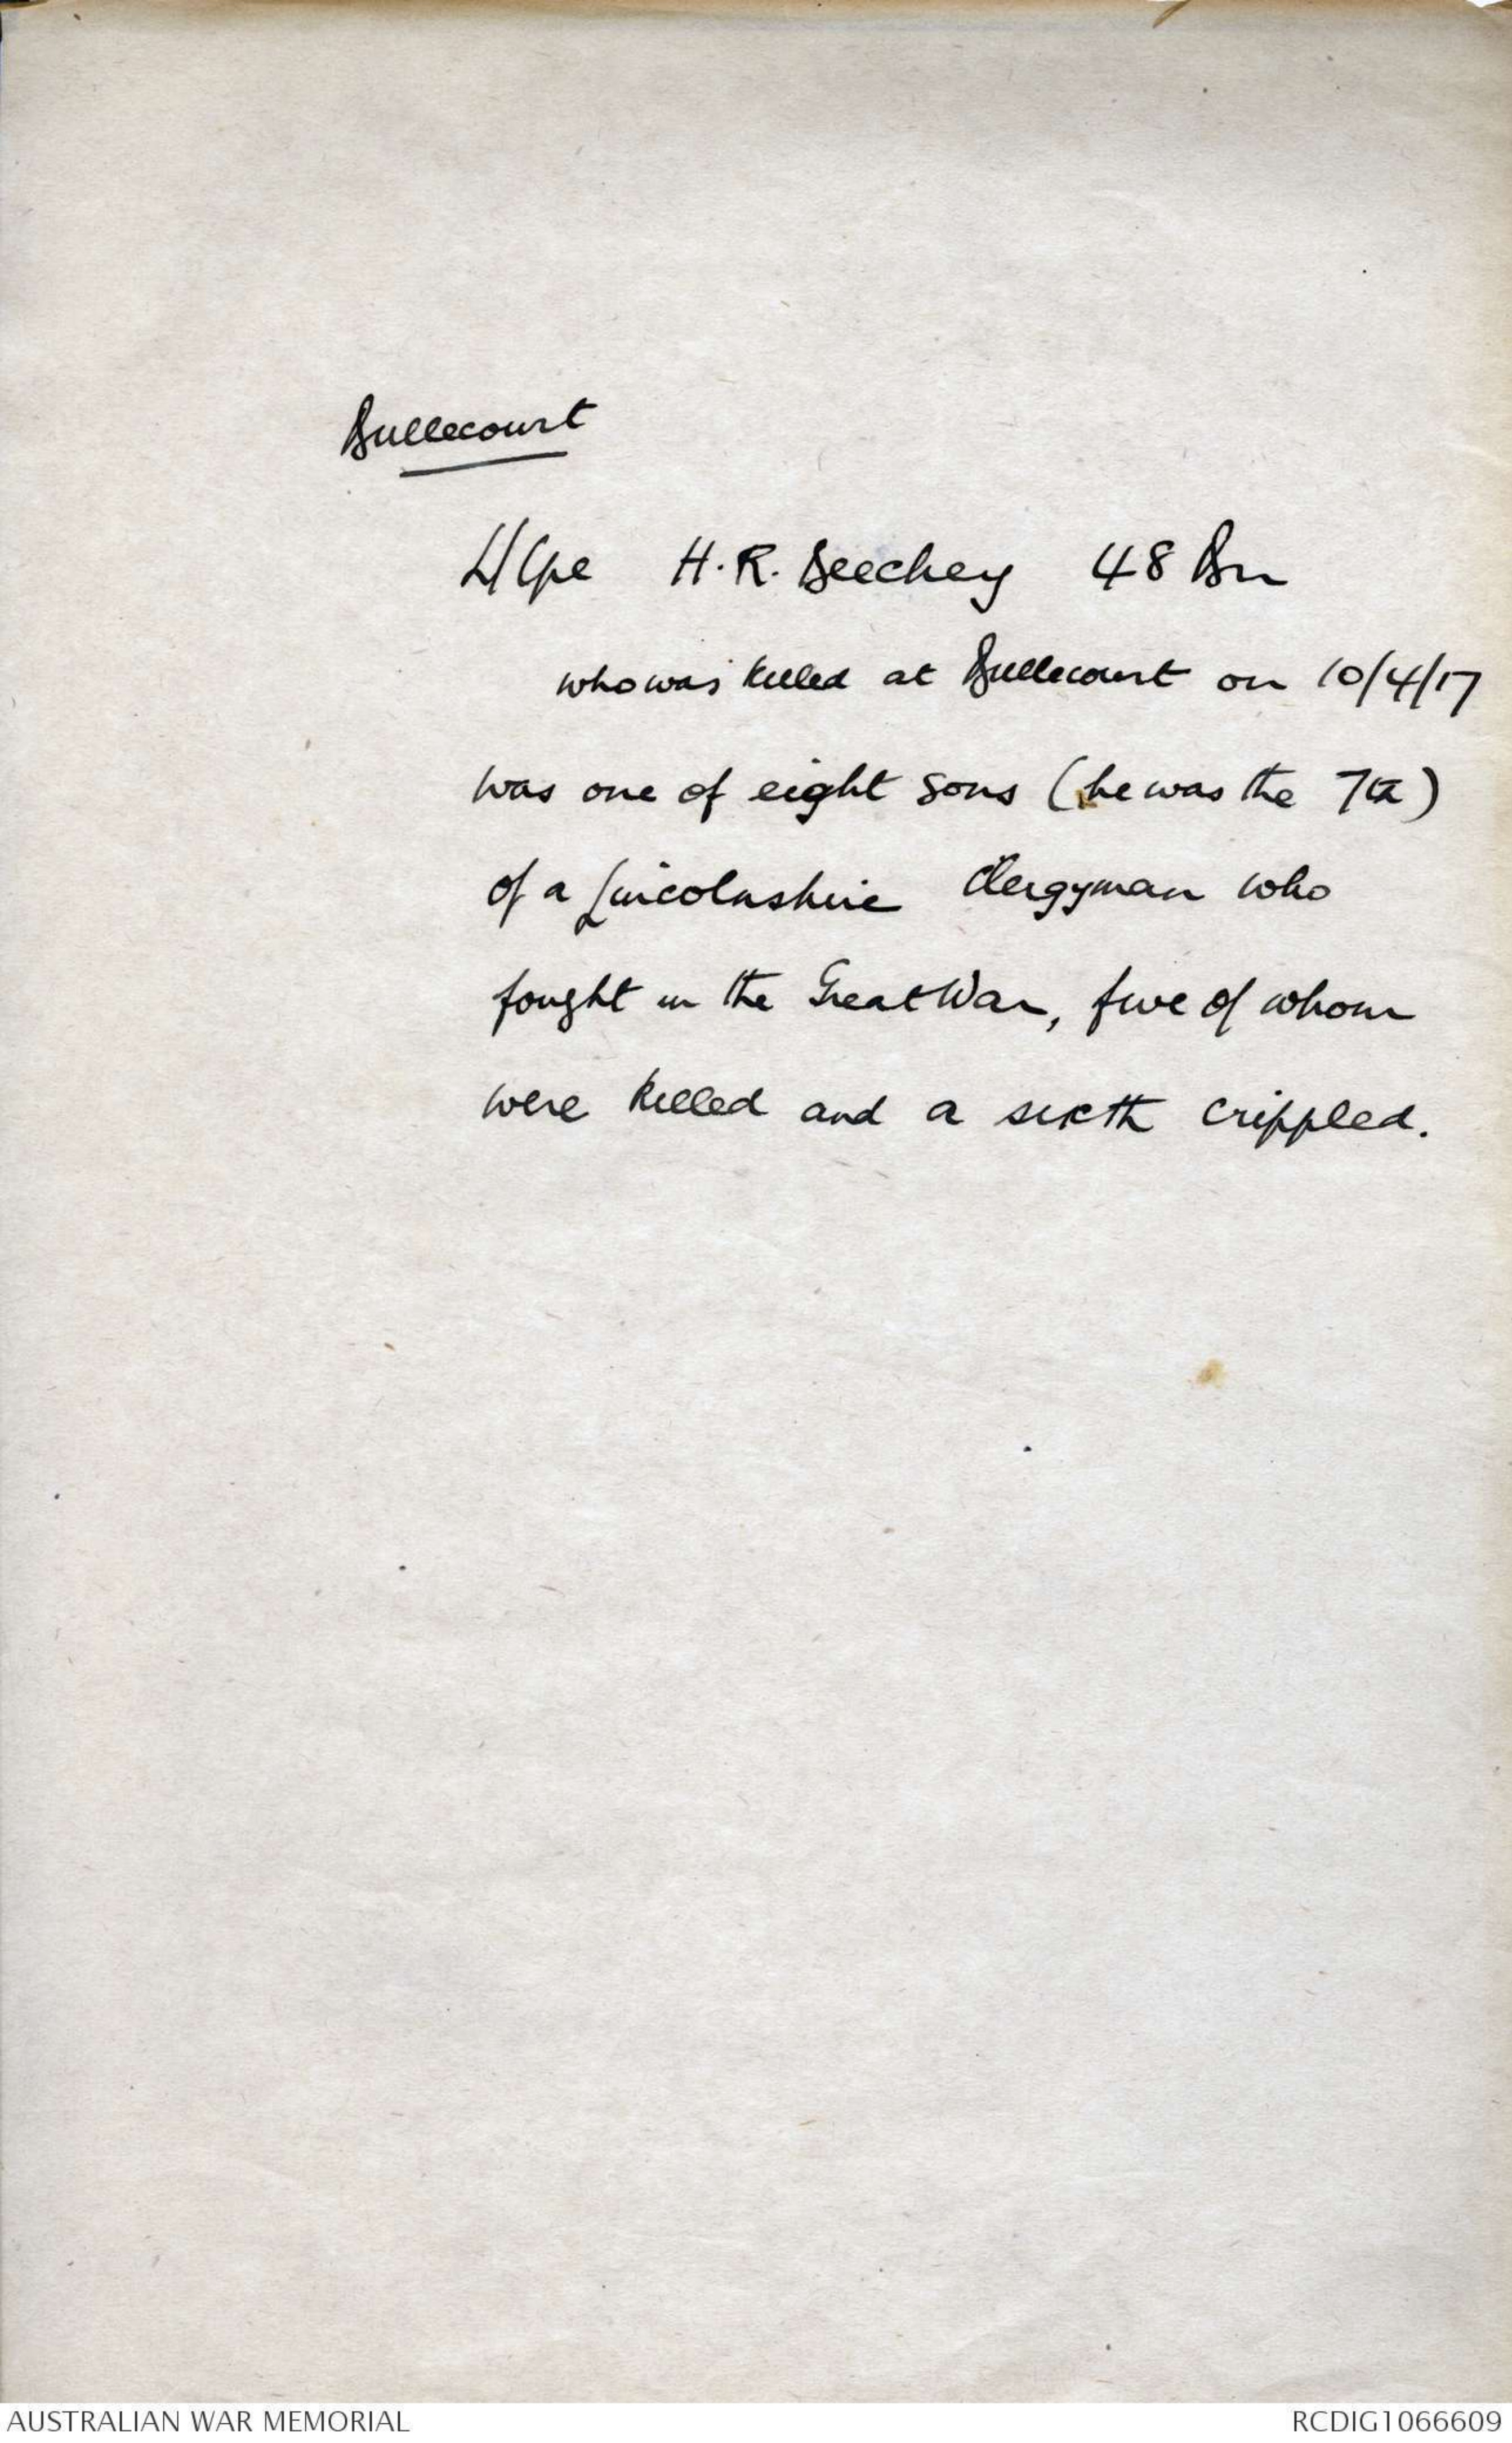 Bullecourt
L/Cpl H.R. Beechey 48 Bn
who was killed at Bullecourt on 10/4/17
was one of eight sons (he was the 7th)
of a Lincolnshire Clergyman who
fought in the Great War, five of whom
were killed and a sixth crippled.
AUSTRALIAN WAR MEMORIAL
RCDIG1066609